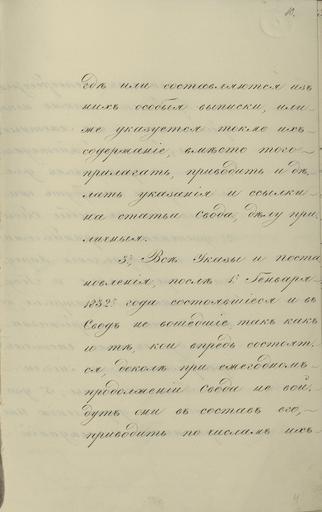 10.
гдѣ или составляются изъ
нихъ особыя выписки, или
же указуется токмо ихъ
содержаніе, вмѣсто того
прилагать, приводить и дѣ
лать указанія и ссылки
на статьи Свода, дѣлу при
личныя.
3, Всѣ Указы и поста
новленія, послѣ 1 Генваря
1832 года состоявшіеся и въ
Сводъ не вошедшіе, такъ какъ
и тѣ, кои впредь состоят
ся, доколѣ при ежегодномъ
продолженіи Свода не вой
дутъ они въ составъ его,
приводить по числамъ ихъ